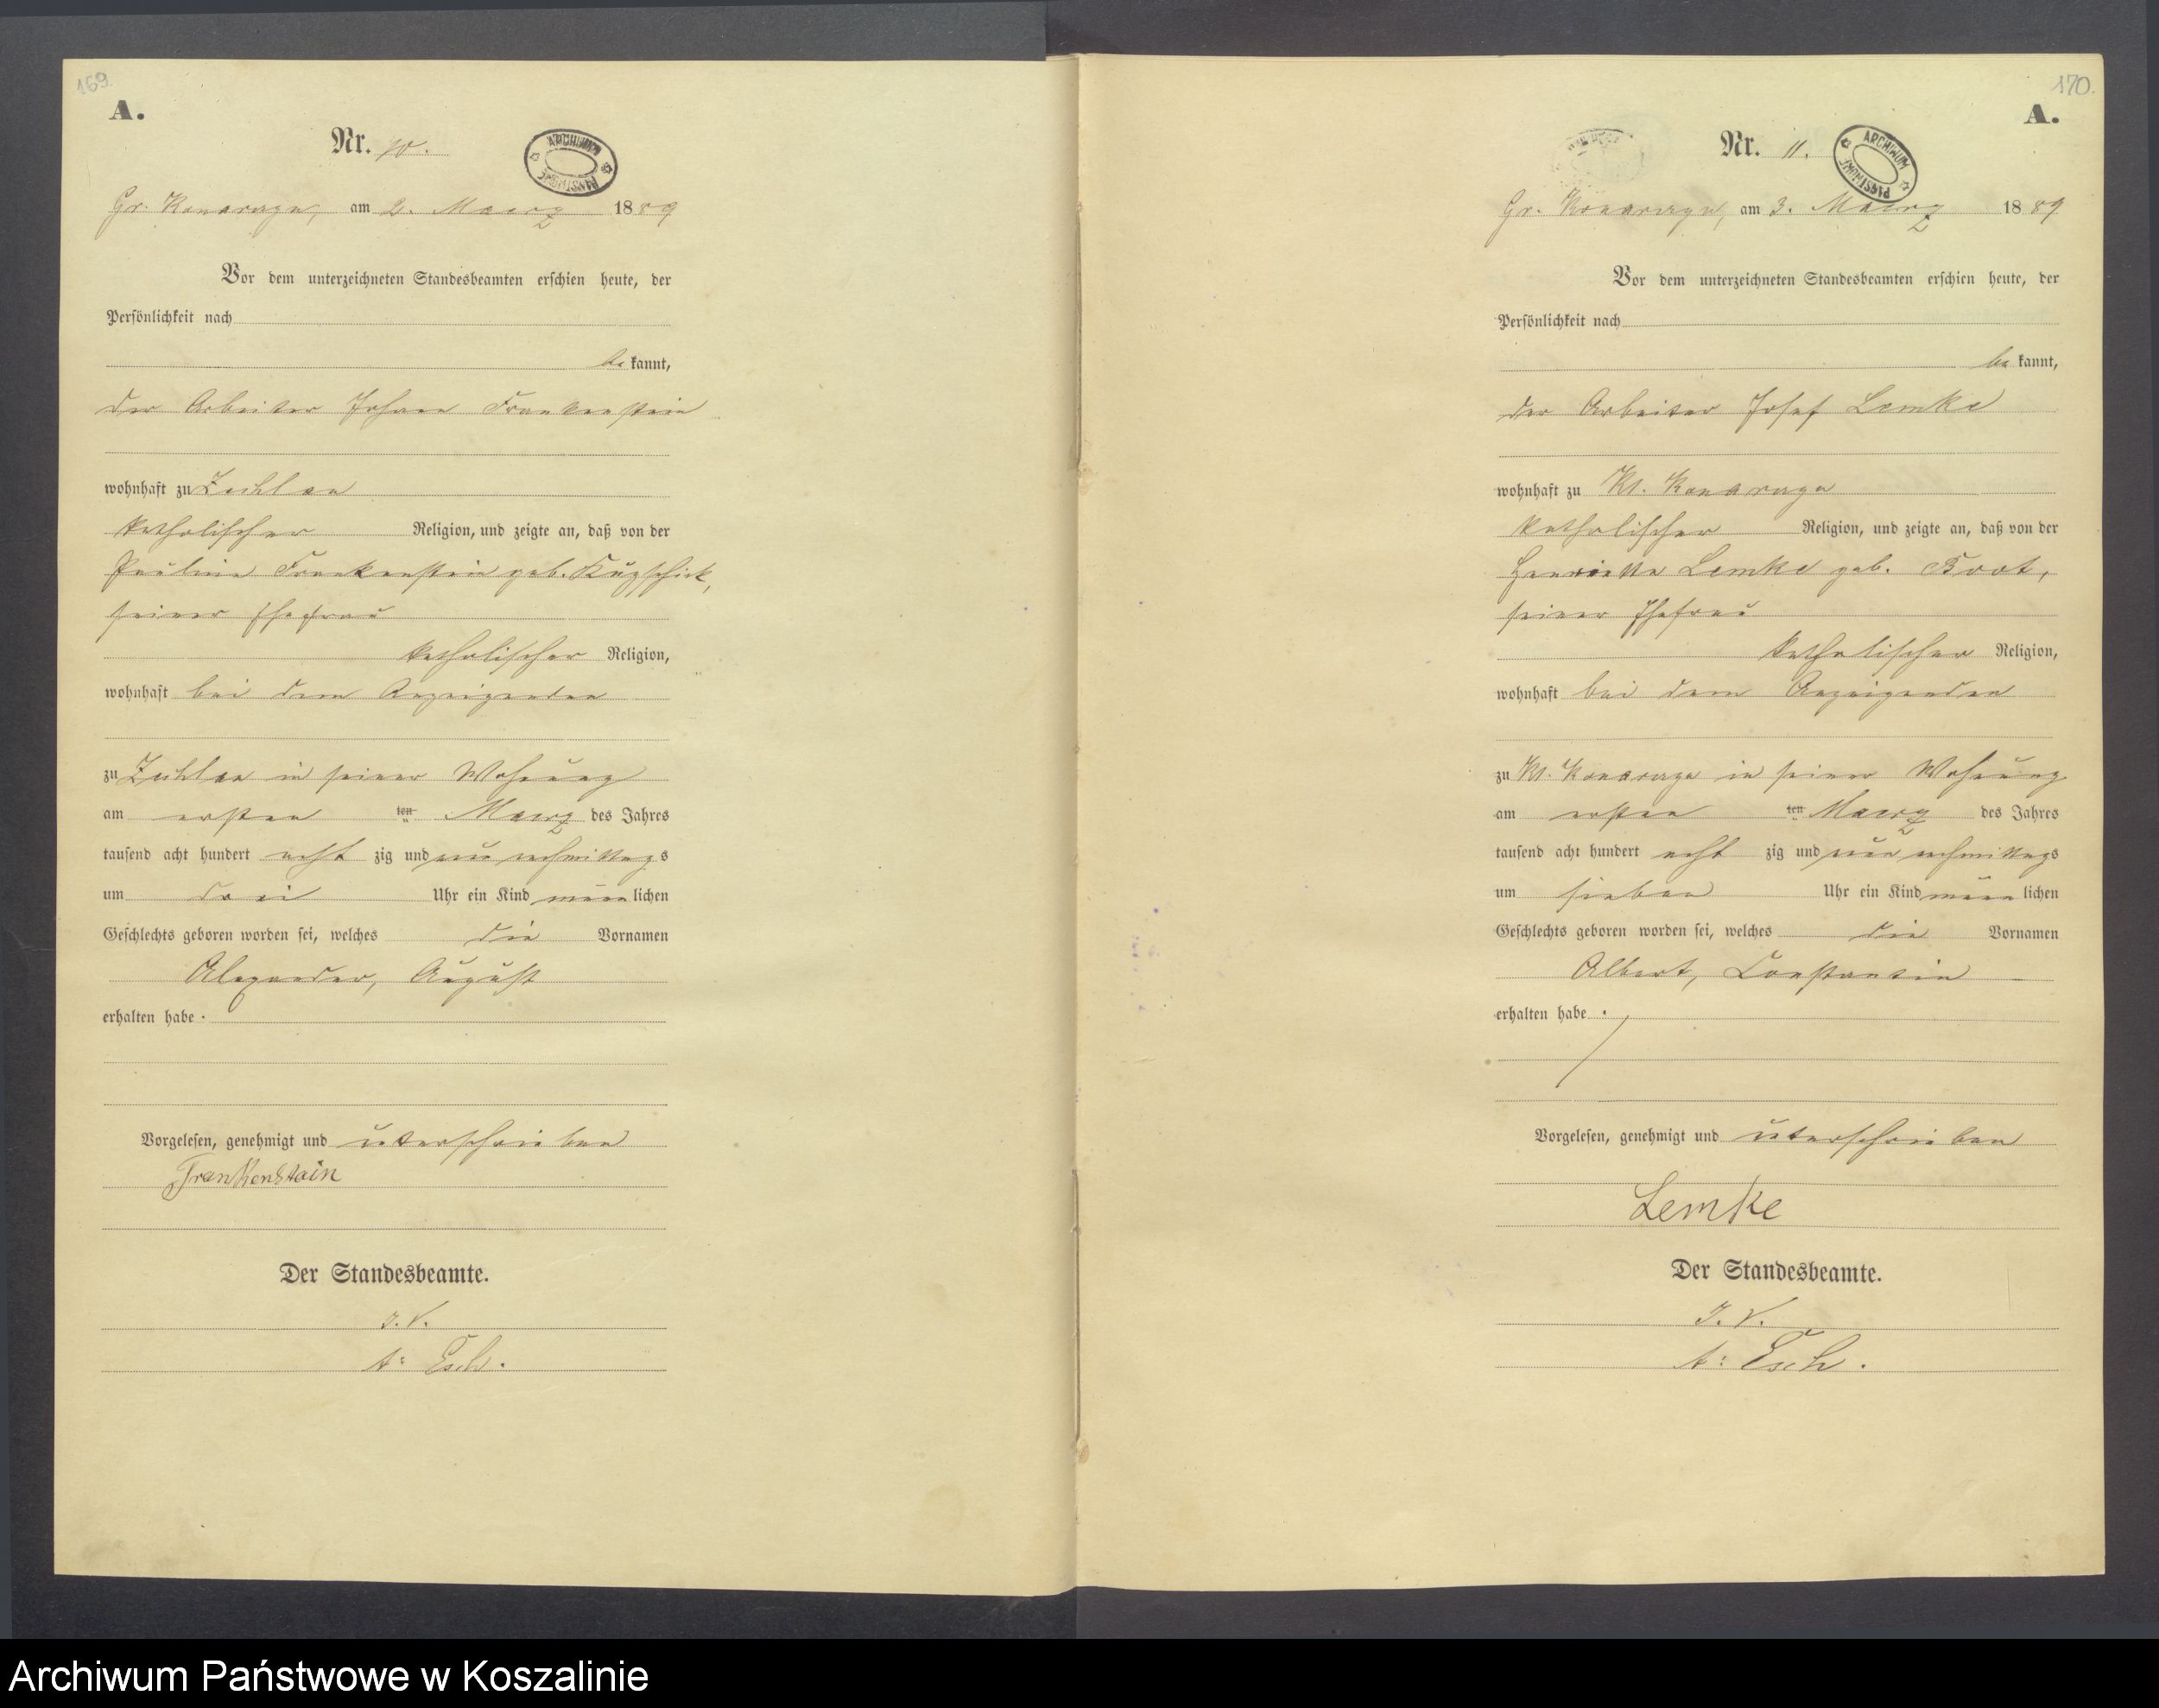 169.
A.
Nr. 10.
ARCHIWUM PAŃSTWOWE
Gr. Konarczyn, am 2. Maerz 1889
Vor dem unterzeichneten Standesbeamten erschien heute, der
Persönlichkeit nach
be kannt,
der Arbeiter Johann Frankenstein
wohnhaft zu
katholischer Religion, und zeigte an, daß von der
Pauline Frankenstein geb.
seiner Ehefrau
katholischer Religion,
wohnhaft bei dem Anzeigenden
zu in seiner Wohnung
am ersten ten Maerz des Jahres
tausend acht hundert acht zig und neun nachmittags
um drei Uhr ein Kind männ lichen
Geschlechts geboren worden sei, welches die Vornamen
Alexander, August
erhalten habe.
Vorgelesen, genehmigt und unterschrieben
Frankenstein
Der Standesbeamte.
I. V.
A: Esch.
170.
A.
Nr. 11.
ARCHIWUM PAŃSTWOWE
Gr. Konarczyn, am 3. Maerz 1889
Vor dem unterzeichneten Standesbeamten erschien heute, der
Persönlichkeit nach
be kannt,
der Arbeiter Josef Lemke
wohnhaft zu Kl. Konarczyn
katholischer Religion, und zeigte an, daß von der
Henriette Lemke geb.
seiner Ehefrau
katholischer Religion,
wohnhaft bei dem Anzeigenden
zu Kl. Konarczyn in seiner Wohnung
am ersten ten Maerz des Jahres
tausend acht hundert acht zig und neun nachmittags
um sieben Uhr ein Kind männ lichen
Geschlechts geboren worden sei, welches die Vornamen
Albert, Constantin
erhalten habe.
Vorgelesen, genehmigt und unterschrieben
Lemke
Der Standesbeamte.
I. V.
A: Esch.
Archiwum Państwowe w Koszalinie